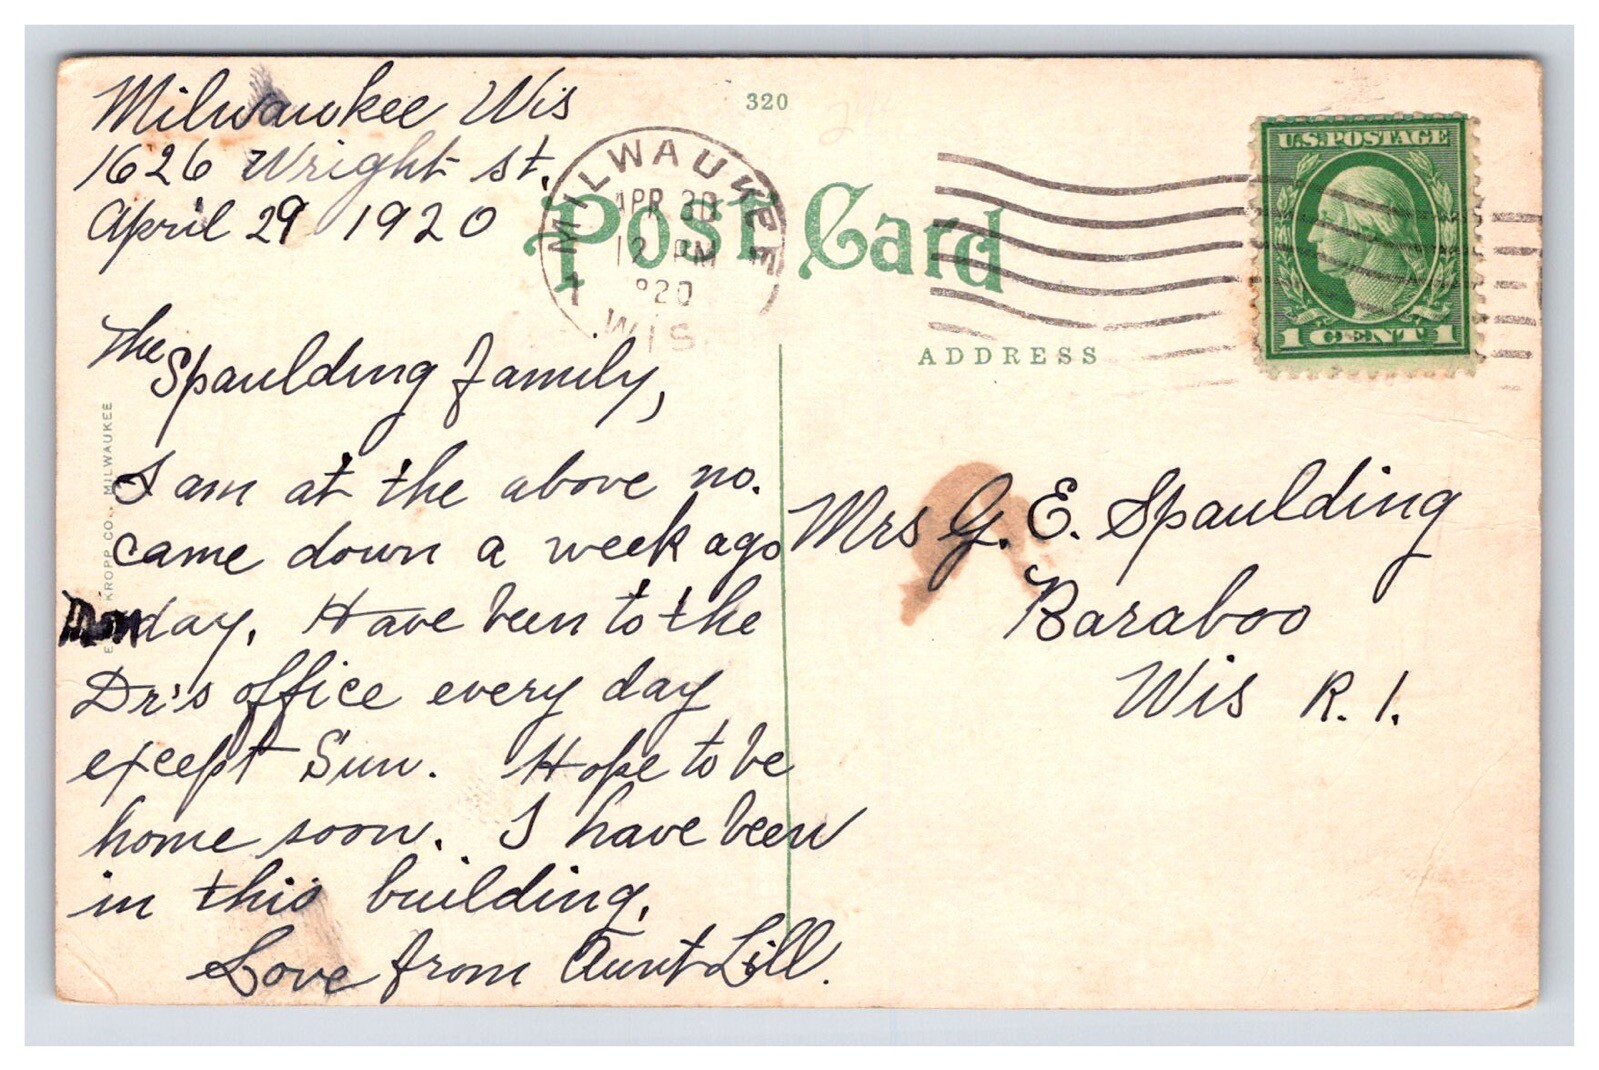 Milwaukee Wis
1626 Wright st.
April 29 1920
The Spaulding Family,
I am at the above no.
came down a week ago
Monday. Have been to the
Dr's office every day
except Sun. Hope to be
home soon. I have been
in this building.
Love from Aunt Lill.
320
MILWAUKEE
APR 30
12 PM
1920
WIS.
Post Card
ADDRESS
U.S. POSTAGE
1 CENT 1
Mrs G. E. Spaulding
Baraboo
Wis R. 1.
E. KROPP CO., MILWAUKEE